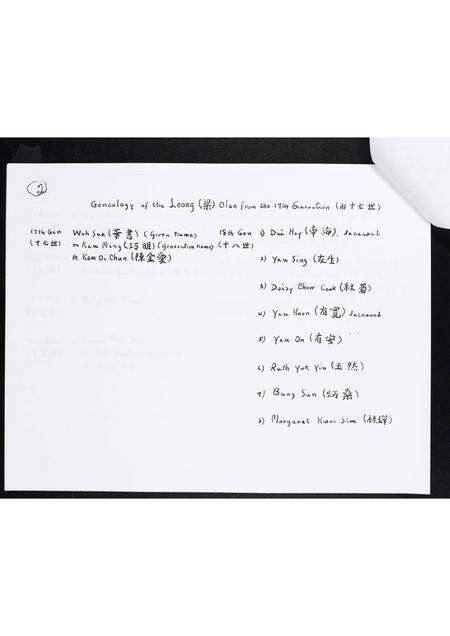 2
Genealogy of the Leong (梁) Clan from the 17th Generation (由十七世)
17th Gen Wah See (華書) (Given Name) 18th Gen 1) Dai Hoy (帝海), deceased
(十七世) or Kau Ming (巧明) (Generation Name) (十八世)
m Kam Oi Chun (陳金愛) 2) Yau Sing (友生)
3) Daisy Chow Cook
4) Yau Hoon (有寬) deceased
5) Yau On (有安)
6) Ruth Yuk Yin (玉然)
7) Bung Sun (炳燊)
8) Margaret Kwai Sim